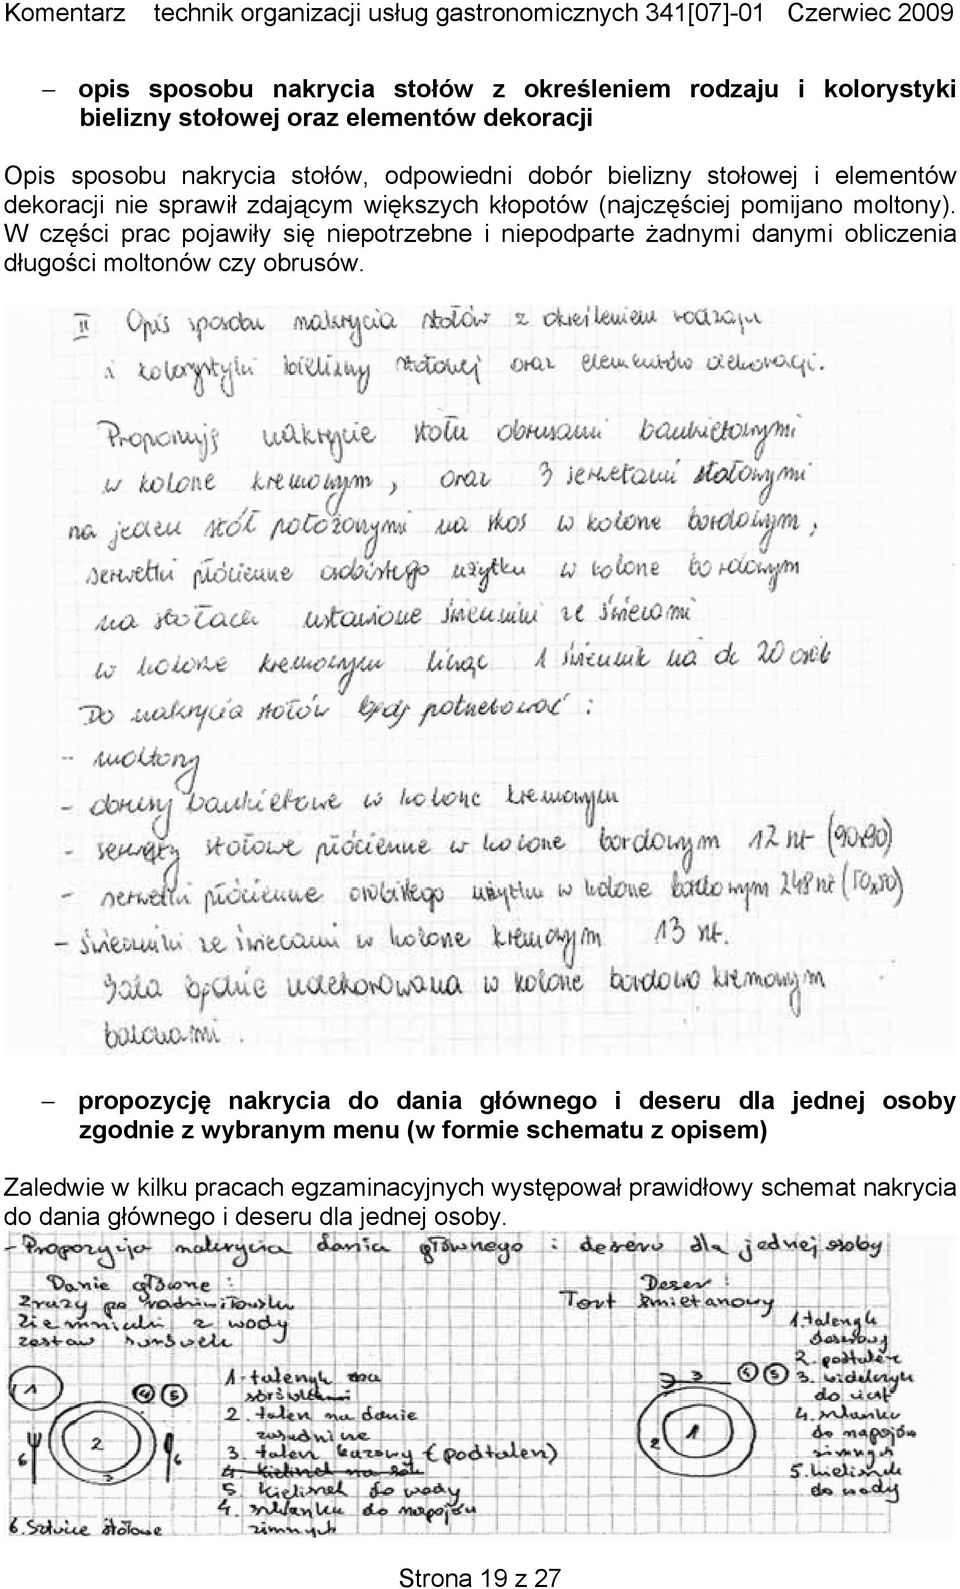 Komentarz technik organizacji usług gastronomicznych 341[07]-01 Czerwiec 2009
− opis sposobu nakrycia stołów z określeniem rodzaju i kolorystyki
bielizny stołowej oraz elementów dekoracji
Opis sposobu nakrycia stołów, odpowiedni dobór bielizny stołowej i elementów
dekoracji nie sprawił zdającym większych kłopotów (najczęściej pomijano moltony).
W części prac pojawiły się niepotrzebne i niepodparte żadnymi danymi obliczenia
długości moltonów czy obrusów.
II Opis sposobu nakrycia stołów z określeniem rodzaju
i kolorystyki bielizny stołowej oraz elementów dekoracji.
Proponuję nakrycie stołu obrusami bankietowymi
w kolorze kremowym, oraz 3 serwetami stołowymi
na jeden stół położonymi na skos w kolorze bordowym,
serwetki płócienne osobistego użytku w kolorze bordowym
na stołach ustawione świeczniki ze świecami
w kolorze kremowym licząc 1 świecznik na dc 20 osób
Do nakrycia stołów będę potrzebować :
- moltony
- obrusy bankietowe w kolorze kremowym
- serwety stołowe płócienne w kolorze bordowym 12 szt (90x90)
- serwetki płócienne osobistego użytku w kolorze bordowym 248 szt (50x50)
- świeczniki ze świecami w kolorze kremowym 13 szt.
Sala będzie udekorowana w kolorze bordowo kremowym
balonami.
− propozycję nakrycia do dania głównego i deseru dla jednej osoby
zgodnie z wybranym menu (w formie schematu z opisem)
Zaledwie w kilku pracach egzaminacyjnych występował prawidłowy schemat nakrycia
do dania głównego i deseru dla jednej osoby.
- Propozycja nakrycia dania głównego i deseru dla jednej osoby
Danie główne :
Zrazy po radziwiłłowsku
Ziemniaki z wody
zestaw surówek
1
4 5
2
3
6 6
1- talerzyk na
surówki
2. talerz na danie
zasadnicze
3. talerz bazowy (podtalerz)
4. kieliszek na
5. Kieliszek do wody
4. szklanka do napojów
zimnych
6. Sztućce stołowe
Deser :
Tort śmietanowy
3
4 5
2
1
1. talerzyk
deserowy
2. podtalerz
3. widelczyk
do ciast
4. szklanka
do napojów
zimnych
5. kieliszek
do wody
Strona 19 z 27